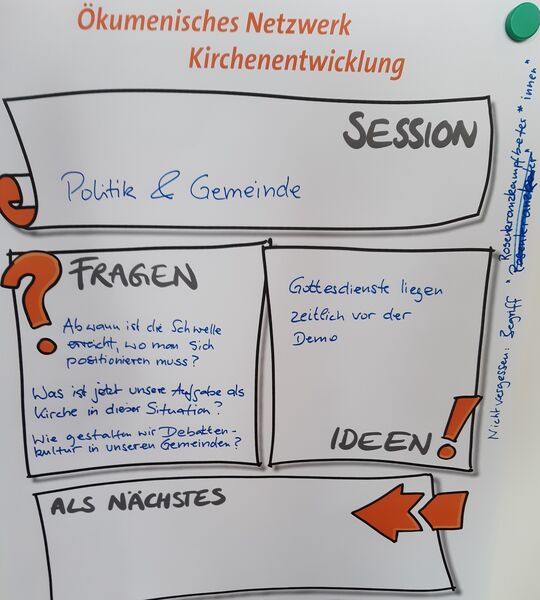 Ökumenisches Netzwerk
Kirchenentwicklung
SESSION
Politik & Gemeinde
?
FRAGEN
Ab wann ist die Schwelle
erreicht, wo man sich
positionieren muss?
Was ist jetzt unsere Aufgabe als
Kirche in dieser Situation?
Wie gestalten wir Debatten-
kultur in unseren Gemeinden?
Gottesdienste liegen
zeitlich vor der
Demo
IDEEN!
ALS NÄCHSTES
Nicht vergessen: Begriff "Rosenkranzkampfbeter*innen"